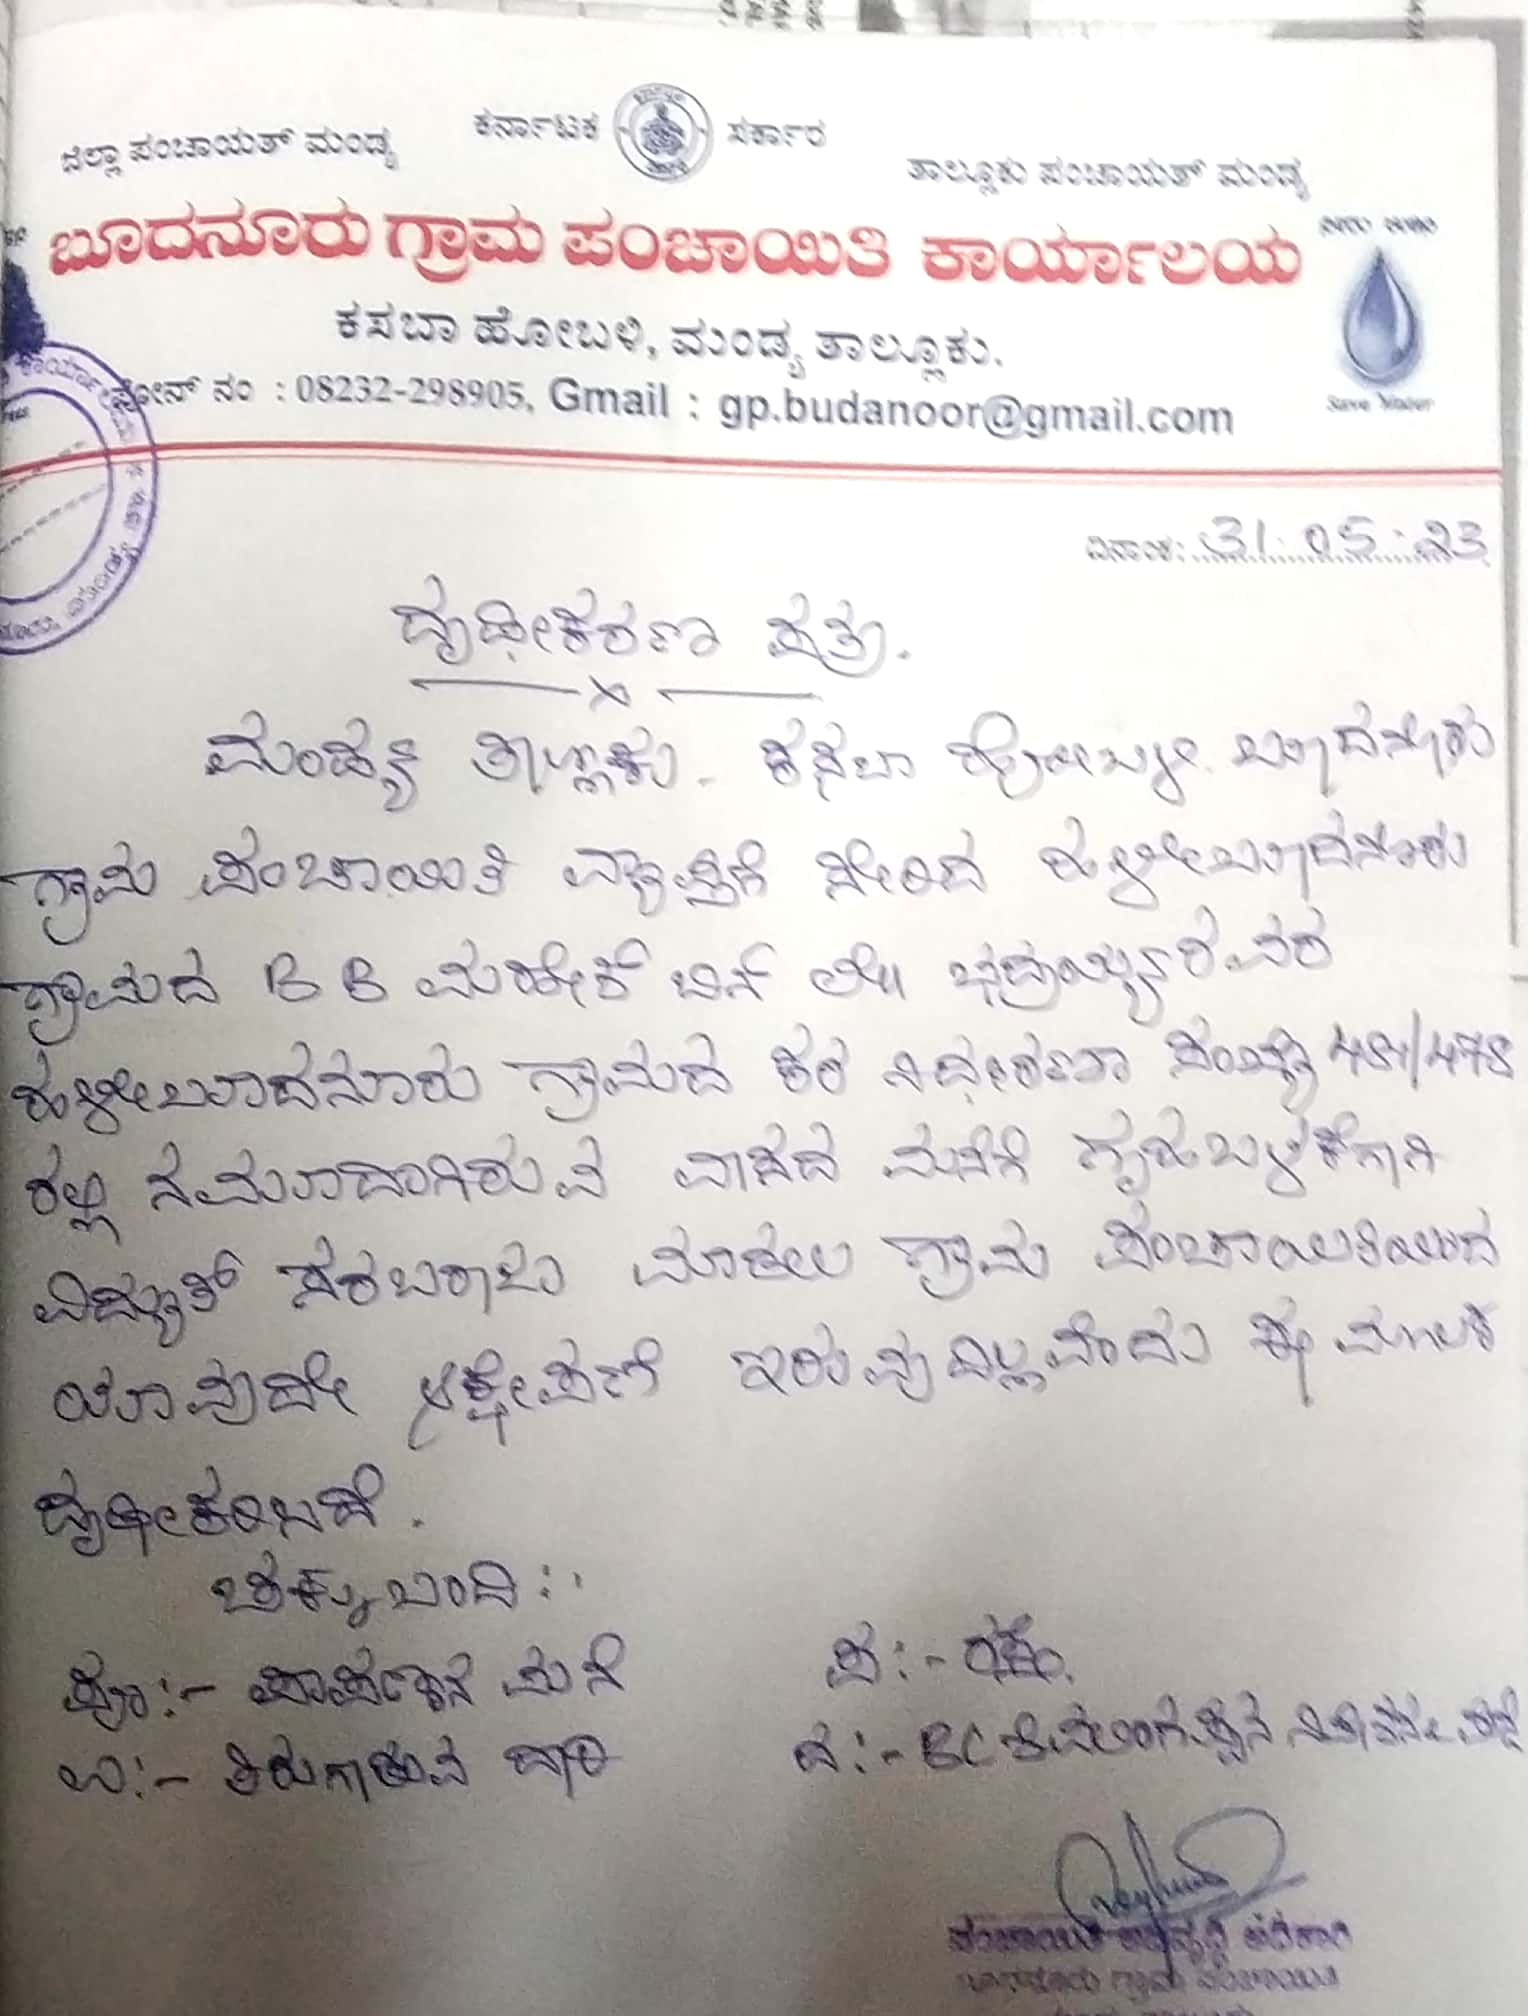 ಜಿಲ್ಲಾ ಪಂಚಾಯತ್ ಮಂಡ್ಯ ಕರ್ನಾಟಕ ಸರ್ಕಾರ ತಾಲ್ಲೂಕು ಪಂಚಾಯತ್ ಮಂಡ್ಯ
ಬೂದನೂರು ಗ್ರಾಮ ಪಂಚಾಯಿತಿ ಕಾರ್ಯಾಲಯ
ಕಸಬಾ ಹೋಬಳಿ, ಮಂಡ್ಯ ತಾಲ್ಲೂಕು.
ಫೋನ್ ನಂ : 08232-298905, Gmail : gp.budanoor@gmail.com
Save Water
ದಿನಾಂಕ: 31:05:23
ದೃಢೀಕರಣ ಪತ್ರ.
ಮಂಡ್ಯ ತಾಲ್ಲೂಕು. ಕಸಬಾ ಹೋಬಳಿ. ಬೂದನೂರು
ಗ್ರಾಮ ಪಂಚಾಯಿತಿ ವ್ಯಾಪ್ತಿಗೆ ಸೇರಿದ ಹಳೇಬೂದನೂರು
ಗ್ರಾಮದ B B ಮಹೇಶ್ ಬಿನ್ ಲೇ॥ ಭದ್ರಯ್ಯರವರ
ಹಳೇಬೂದನೂರು ಗ್ರಾಮದ ಕರ ನಿರ್ಧರಣಾ ಸಂಖ್ಯೆ 481/478
ರಲ್ಲಿ ನಮೂದಾಗಿರುವ ವಾಸದ ಮನೆಗೆ ಗೃಹಬಳಕೆಗಾಗಿ
ವಿದ್ಯುತ್ ಸರಬರಾಜು ಮಾಡಲು ಗ್ರಾಮ ಪಂಚಾಯಿತಿಯಿಂದ
ಯಾವುದೇ ಆಕ್ಷೇಪಣೆ ಇರುವುದಿಲ್ಲವೆಂದು ಈ ಮೂಲಕ
ದೃಢೀಕರಿಸಿದೆ.
ಚಕ್ಕುಬಂದಿ :-
ಪೂ :- ಮನೆ ಪ :- ರಸ್ತೆ.
ಉ :- ತಿರುಗಾಡುವ ದಾರಿ ದ :- BC
ಪಂಚಾಯಿತಿ ಅಭಿವೃದ್ಧಿ ಅಧಿಕಾರಿ
ಬೂದನೂರು ಗ್ರಾಮ ಪಂಚಾಯಿತಿ